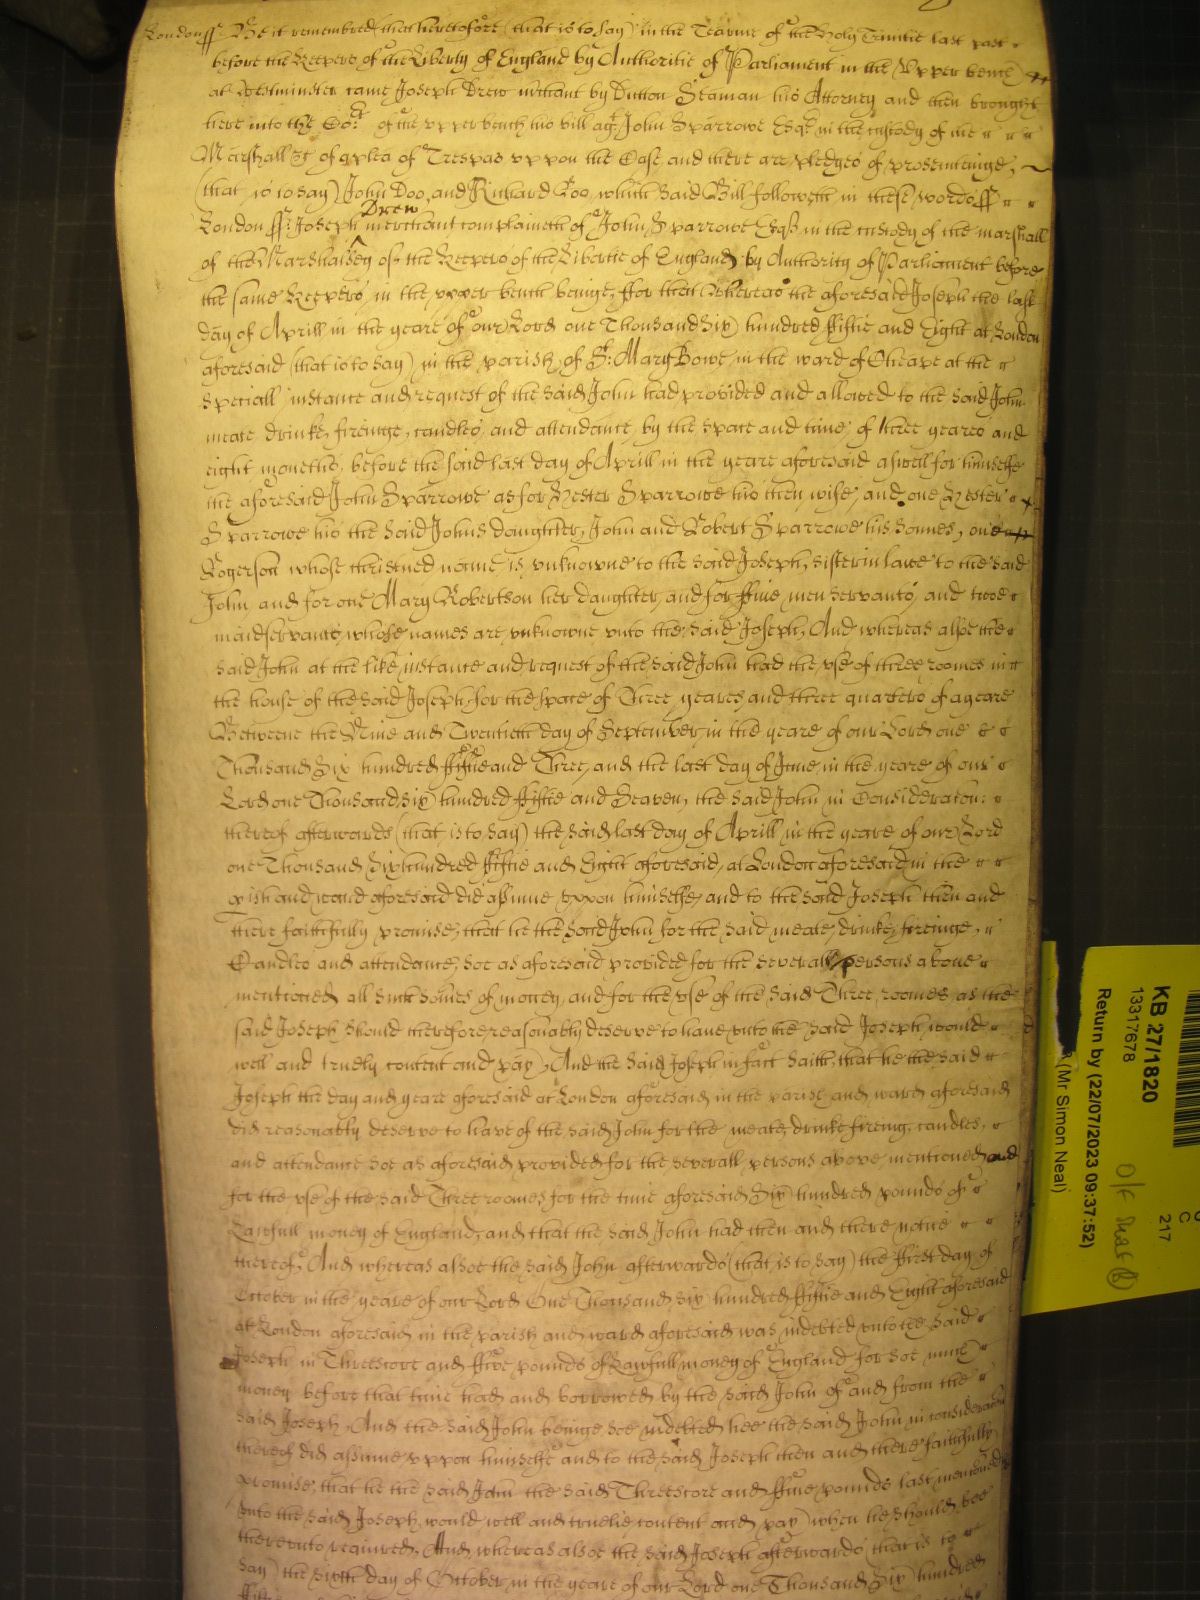 London ss Be it remembred that heretofore (that is to say) in the Tearme of the Holy Trinitie last past
before the Keepers of the Liberty of England by Authoritie of Parliament in the Vpper bench
at Westminster came Joseph Drew m'chant by Dutton Seaman his Attorney and then brought
here into the Co:rt of the vpper bench his bill agt. John Sparrowe Esqr in the custody of the
Marshall &c of a plea of Trespas vppon the Case, and there are pledges of prosecuteinge,
(that is to say) John Doo, and Richard Roo, which said Bill followeth in these words ss
London ss: Joseph Drew merchant complaineth of John Sparrowe Esqr in the custody of the marshall
of the Marshalsey of the Keepers of the Libertie of England by Authority of Parliament before
the same Keepers, in the vpper bench beinge, ffor that Whereas the aforesaid Joseph the last
day of Aprill in the yeare of our Lord one Thousand Six hundred ffiftie and Eight at London
aforesaid (that is to say) in the parish of St: Mary Bowe in the ward of Cheape at the
speciall instance and request of the said John had provided and allowed to the said John
meate, drinke, fireinge, candles, and attendance, by the space and time of three yeares and
eight moneths, before the said last day of Aprill in the yeare aforesaid aswell for himselfe
the aforesaid John Sparrowe as for Hester Sparrowe his then wife, and one Hester
Sparrowe his the said Johns daughter, John and Robert Sparrowe his sonnes, one
Rogerson whose christned name is vnknowne to the said Joseph, sister in lawe to the said
John and for one Mary Robertson her daughter, and for ffive men servants, and twoe
maidservants, whose names are vnknowne vnto the said Joseph, And whereas alsoe the
said John at the like instance and request of the said John had the vse of three roomes in
the house of the said Joseph for the space of Three yeares and three quarters of a yeare
Betweene the Nine and Twentieth day of September in the yeare of our Lord one
Thousand Six hundred ffiftie and Three, and the last day of June in the yeare of our
Lord one Thousand six hundred ffiftie and Seaven, the said John in Consideracon:
thereof afterwards (that is to say) the said last day of Aprill in the yeare of our Lord
one Thousand Six hundred ffiftie and Eight aforesaid, at London aforesaid in the
pish and ward aforesaid did assume vppon himselfe, and to the said Joseph then and
there faithfully promise, that he the said John for the said meate, drinke, fireinge,
Candles and attendance, soe as aforesaid provided for the severall persons above
mentioned all such somes of money, and for the vse of the said Three roomes, as the
said Joseph should therefore reasonably deserve to have, vnto the said Joseph would
well and truely content and pay, And the said Joseph in fact saith, that he the said
Joseph the day and yeare aforesaid at London aforesaid in the parish and ward aforesaid
did reasonably deserve to have of the said John for the meate, drinke fireing, candles,
and attendance soe as aforesaid provided for the severall persons above mentioned and
for the vse of the said Three roomes, for the time aforesaid Six hundred pounds of
Lawfull money of England, and that the said John had then and there notice
thereof, And whereas alsoe the said John afterwards (that is to say) the ffirst day of
October in the yeare of our Lord One Thousand six hundred ffiftie and Eight aforesaid
at London aforesaid in the parish and ward aforesaid was indebted vnto the said
Joseph in Threescore and ffive pounds of Lawfull money of England for soe much
money before that time had and borrowed by the said John of and from the
said Joseph, And the said John beinge soe indebted hee the said John in consideracon
thereof did assume vppon himselfe and to the said Joseph then and there faithfully
promise, that he the said John the said Threescore and ffive pounds last mentioned
vnto the said Joseph would well and truelie content and pay when he should bee
therevnto required, And whereas alsoe the said Joseph afterwards (that is to
say) the sixth day of October in the yeare of our Lord one Thousand Six hundred
KB 27/1820
13317678
Return by (22/07/2023 09:37:52)
(Mr Simon Neal)
C
217